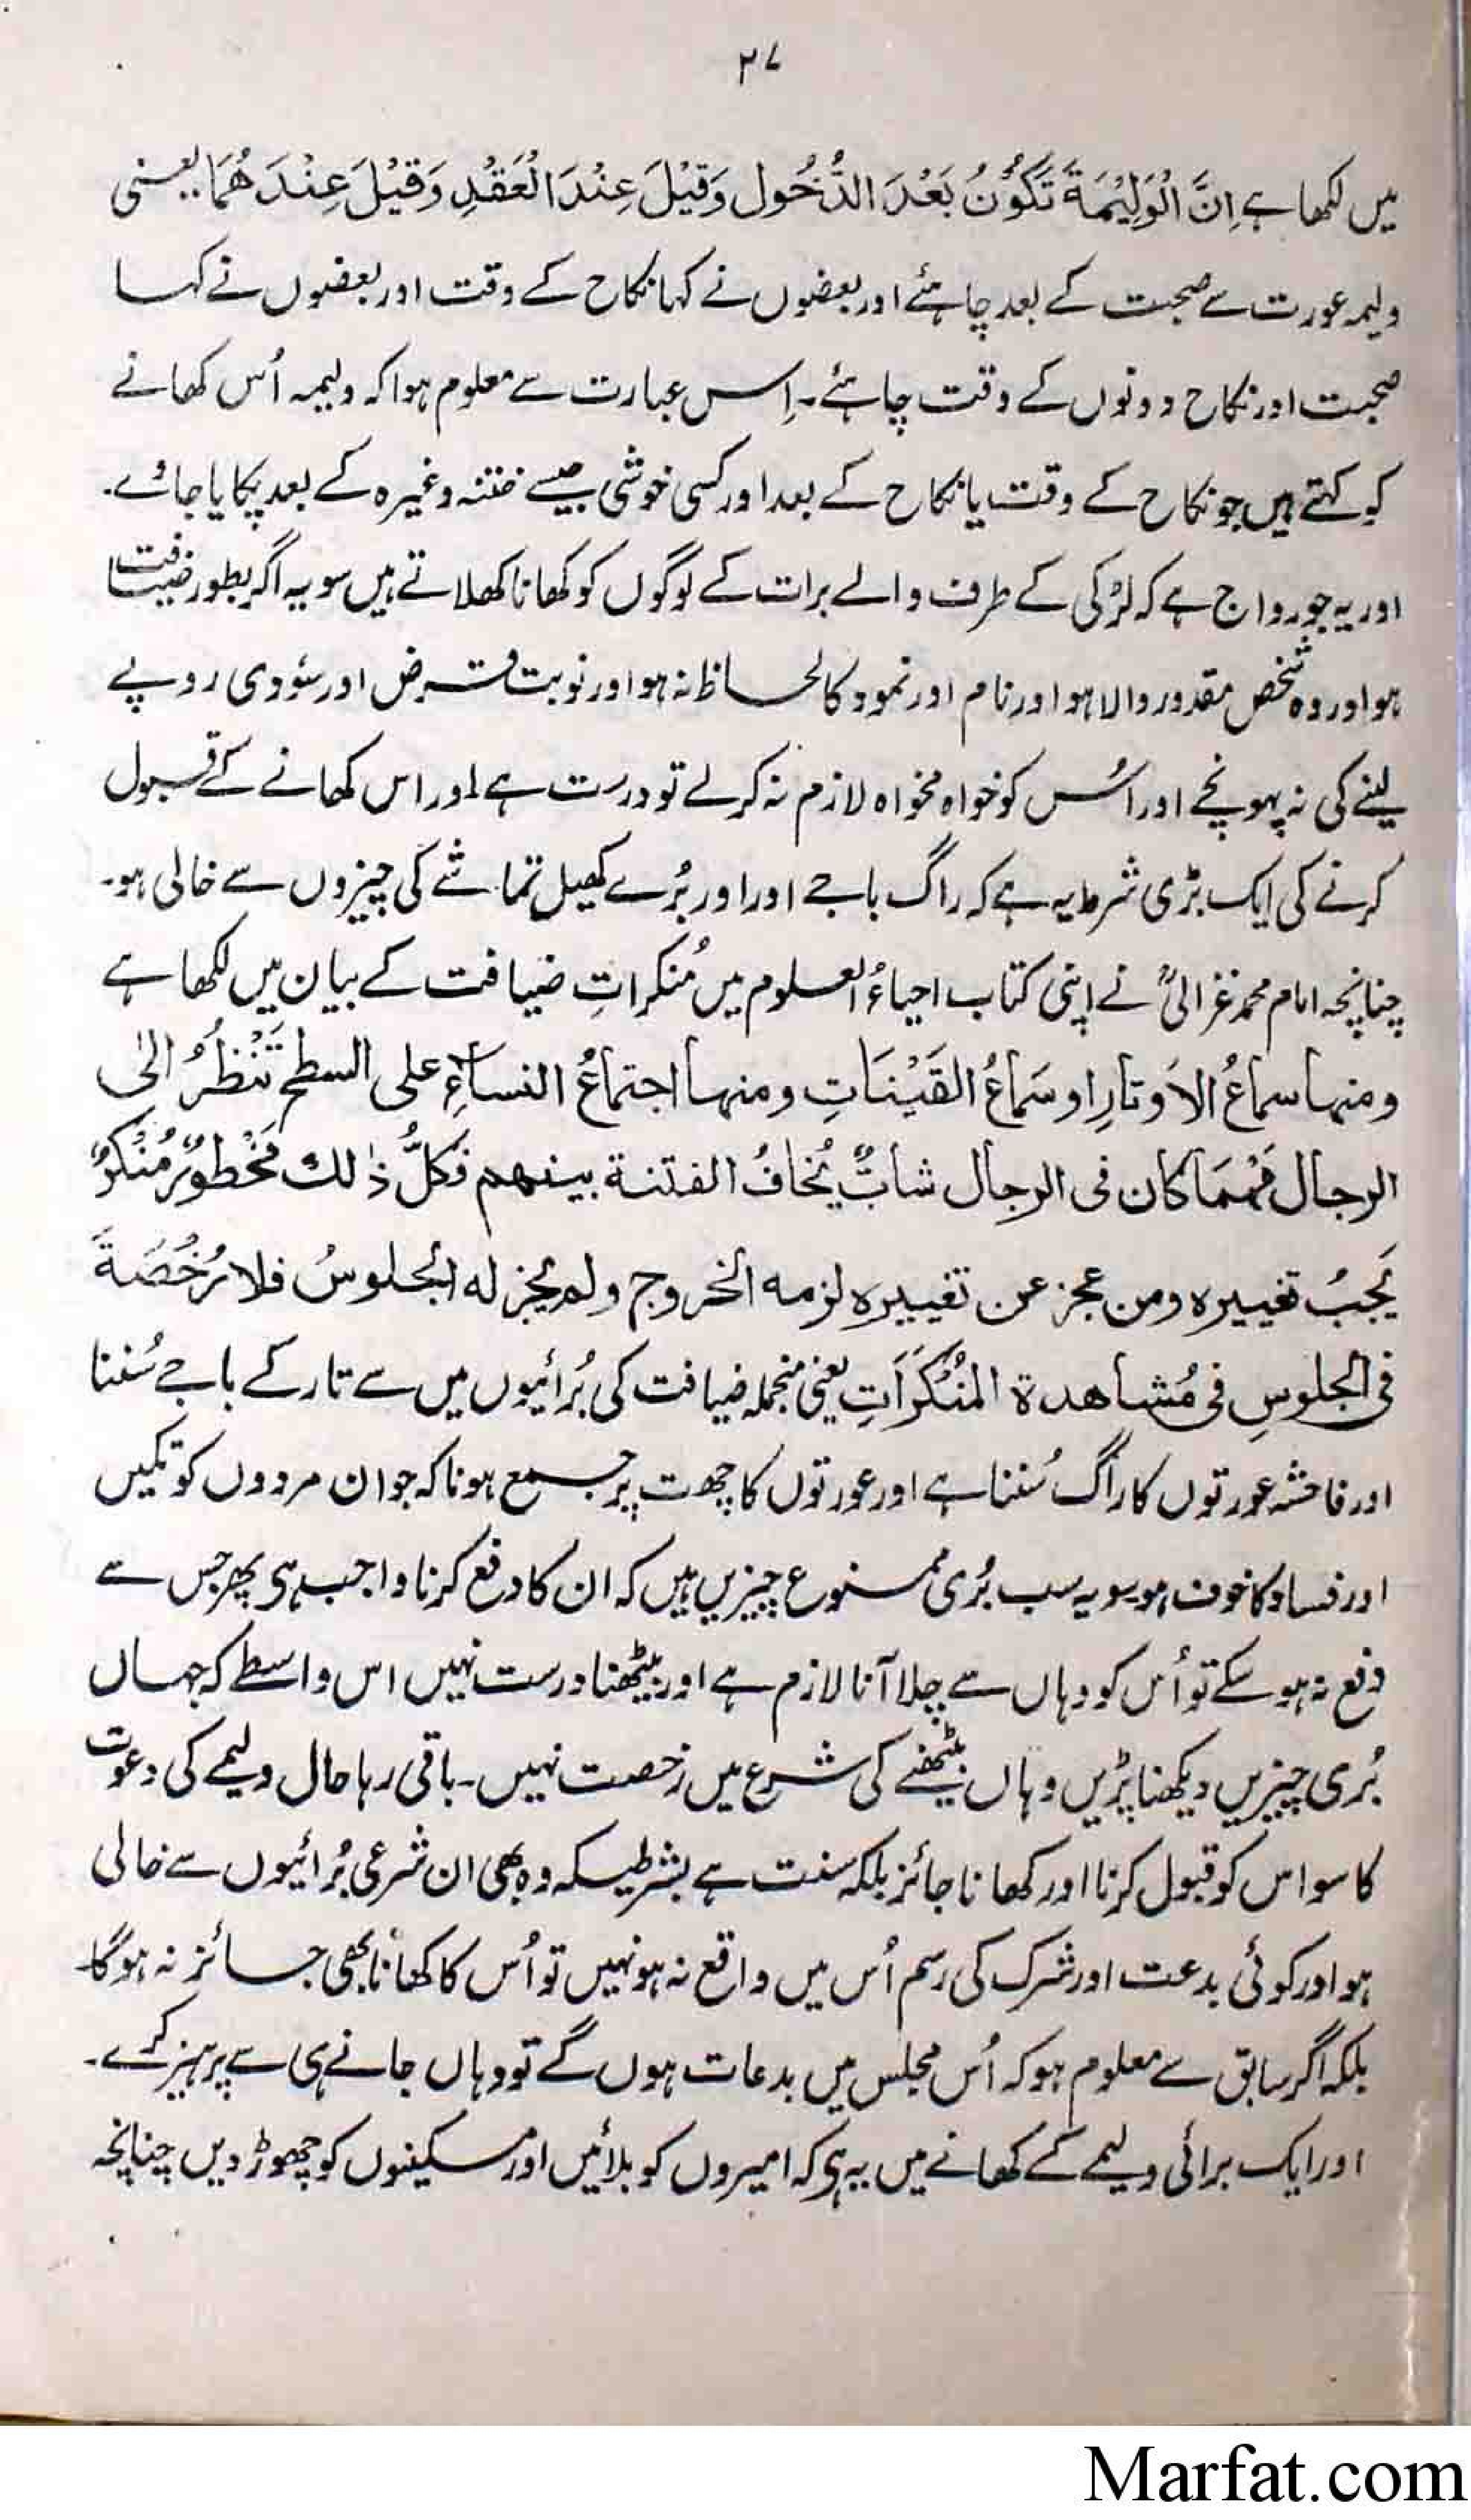 ۳۷
میں لکھا ہے اِنَّ الْوَلِیْمَۃَ تَکُوْنُ بَعْدَ الدُّخُول وَقِیْلَ عِنْدَ الْعَقْدِ وَقِیْلَ عِنْدَ ھُمَا۔ یعنی
ولیمہ عورت سے صحبت کے بعد چاہئے اور بعضوں نے کہا نکاح کے وقت اور بعضوں نے کہا
صحبت اور نکاح دونوں کے وقت چاہئے۔ اِس عبارت سے معلوم ہوا کہ ولیمہ اُس کھانے
کو کہتے ہیں جو نکاح کے وقت یا نکاح کے بعد اور کسی خوشی جیسے ختنہ وغیرہ کے بعد پکایا جائے۔
اور یہ جو رواج ہے کہ لڑکی کے طرف والے برات کے لوگوں کو کھانا کھلاتے ہیں سو یہ اگر بطور ضیافت
ہو اور وہ شخص مقدور والا ہو اور نام اور نمود کا لحاظ نہ ہو اور نوبت قرض اور سُودی روپے
لینے کی نہ پہونچے اور اُس کو خواہ مخواہ لازم نہ کرلے تو درست ہے اور اس کھانے کے قبول
کرنے کی ایک بڑی شرط یہ ہے کہ راگ باجے اور اور بُرے کھیل تماشے کی چیزوں سے خالی ہو۔
چنانچہ امام محمد غزالیؒ نے اپنی کتاب احیاءُ العلوم میں مُنکراتِ ضیافت کے بیان میں لکھا ہے
ومنہا سماعُ الاَوتارِ او سَمَاعُ القَیْنَاتِ ومنہا اجتماعُ النساءِ علی السطح تَنْظُرُ الیٰ
الرجال مَہْمَا کان فی الرجال شابٌّ یُخَافُ الفتنۃ بینھم فکلُّ ذٰلك مَحْظوُرٌ مُنْکَرٌ
یَجبُ تغییرہ ومن عجز عن تغییرہ لزمہ الخروج ولم یجز لہ الجلوسُ فلا رُخْصَۃَ
فی الجلوسِ فی مُشاھدۃ المُنْکَرَاتِ یعنی منجملہ ضیافت کی بُرائیوں میں سے تار کے باجے سُننا
اور فاحشہ عورتوں کا راگ سُننا ہے اور عورتوں کا چھت پر جمع ہونا کہ جوان مردوں کو تکیں
اور فساد کا خوف ہو سو یہ سب بُری ممنوع چیزیں ہیں کہ ان کا دفع کرنا واجب ہی پھر جس سے
دفع نہ ہو سکے تو اُس کو وہاں سے چلا آنا لازم ہے اور بیٹھنا درست نہیں اس واسطے کہ جہاں
بُری چیزیں دیکھنا پڑیں وہاں بیٹھنے کی شرع میں رخصت نہیں۔ باقی رہا حال ولیمے کی دعوت
کا سو اس کو قبول کرنا اور کھانا جائز بلکہ سنت ہے بشرطیکہ وہ بھی ان شرعی بُرائیوں سے خالی
ہو اور کوئی بدعت اور شرک کی رسم اُس میں واقع نہ ہو نہیں تو اُس کا کھانا بھی جائز نہ ہوگا۔
بلکہ اگر سابق سے معلوم ہو کہ اُس مجلس میں بدعات ہوں گے تو وہاں جانے ہی سے پرہیز کرے۔
اور ایک برائی ولیمے کے کھانے میں یہ ہی کہ امیروں کو بلائیں اور مسکینوں کو چھوڑ دیں چنانچہ
Marfat.com